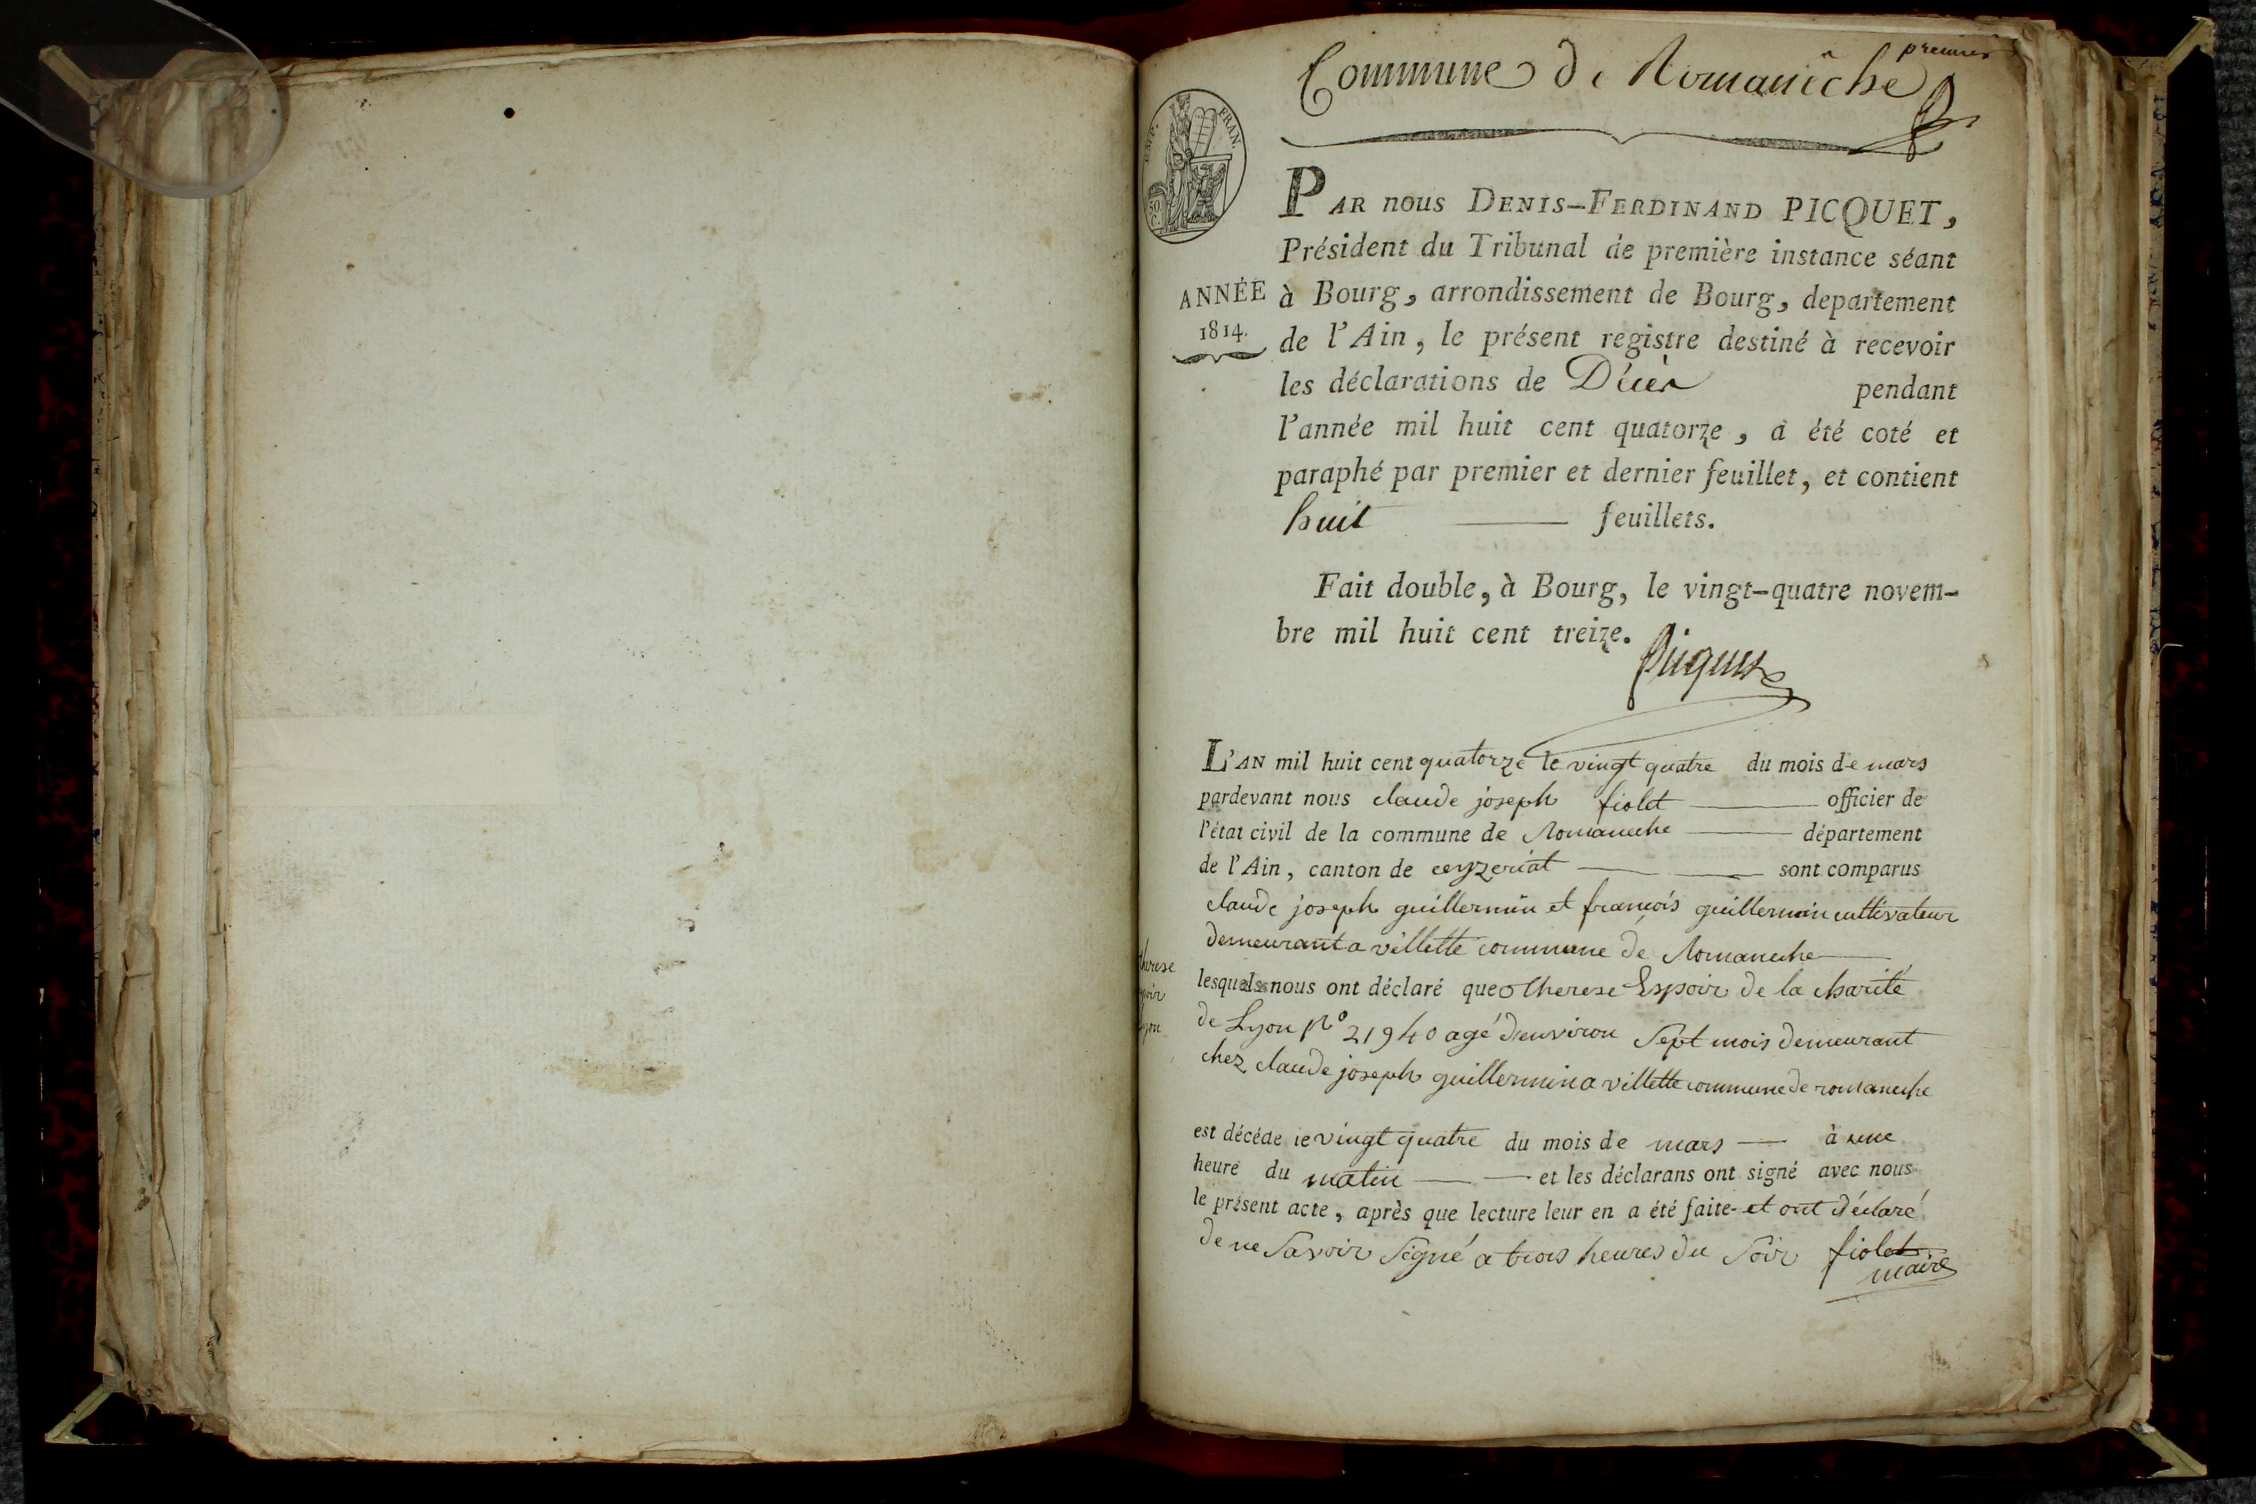 premier
Commune de Romanêche
EMP. FRAN.
50
C.
PAR nous DENIS-FERDINAND PICQUET,
Président du Tribunal de première instance séant
ANNÉE
1814.
à Bourg, arrondissement de Bourg, departement
de l'Ain, le présent registre destiné à recevoir
les déclarations de Décès pendant
l'année mil huit cent quatorze, a été coté et
paraphé par premier et dernier feuillet, et contient
huit feuillets.
Fait double, à Bourg, le vingt-quatre novem-
bre mil huit cent treize.
Picquet
L'AN mil huit cent quatorze le vingt quatre du mois de mars
pardevant nous claude joseph fiolet officier de
l'état civil de la commune de Romaneche département
de l'Ain, canton de ceyzeriat sont comparus
claude joseph guillermin et francois guillermin cultivateur
demeurant a villette commune de Romaneche
therese
poir
yon
lesquels nous ont déclaré que therese Espoir de la charité
de Lyon No 21940 agé d'environ Sept mois demeurant
chez claude joseph guillermin a villette commune de romaneche
est décéde le vingt quatre du mois de mars à une
heure du matin et les déclarans ont signé avec nous
le présent acte, après que lecture leur en a été faite et ont déclaré
de ne Savoir Signé a trois heures du Soir fiolet
maire